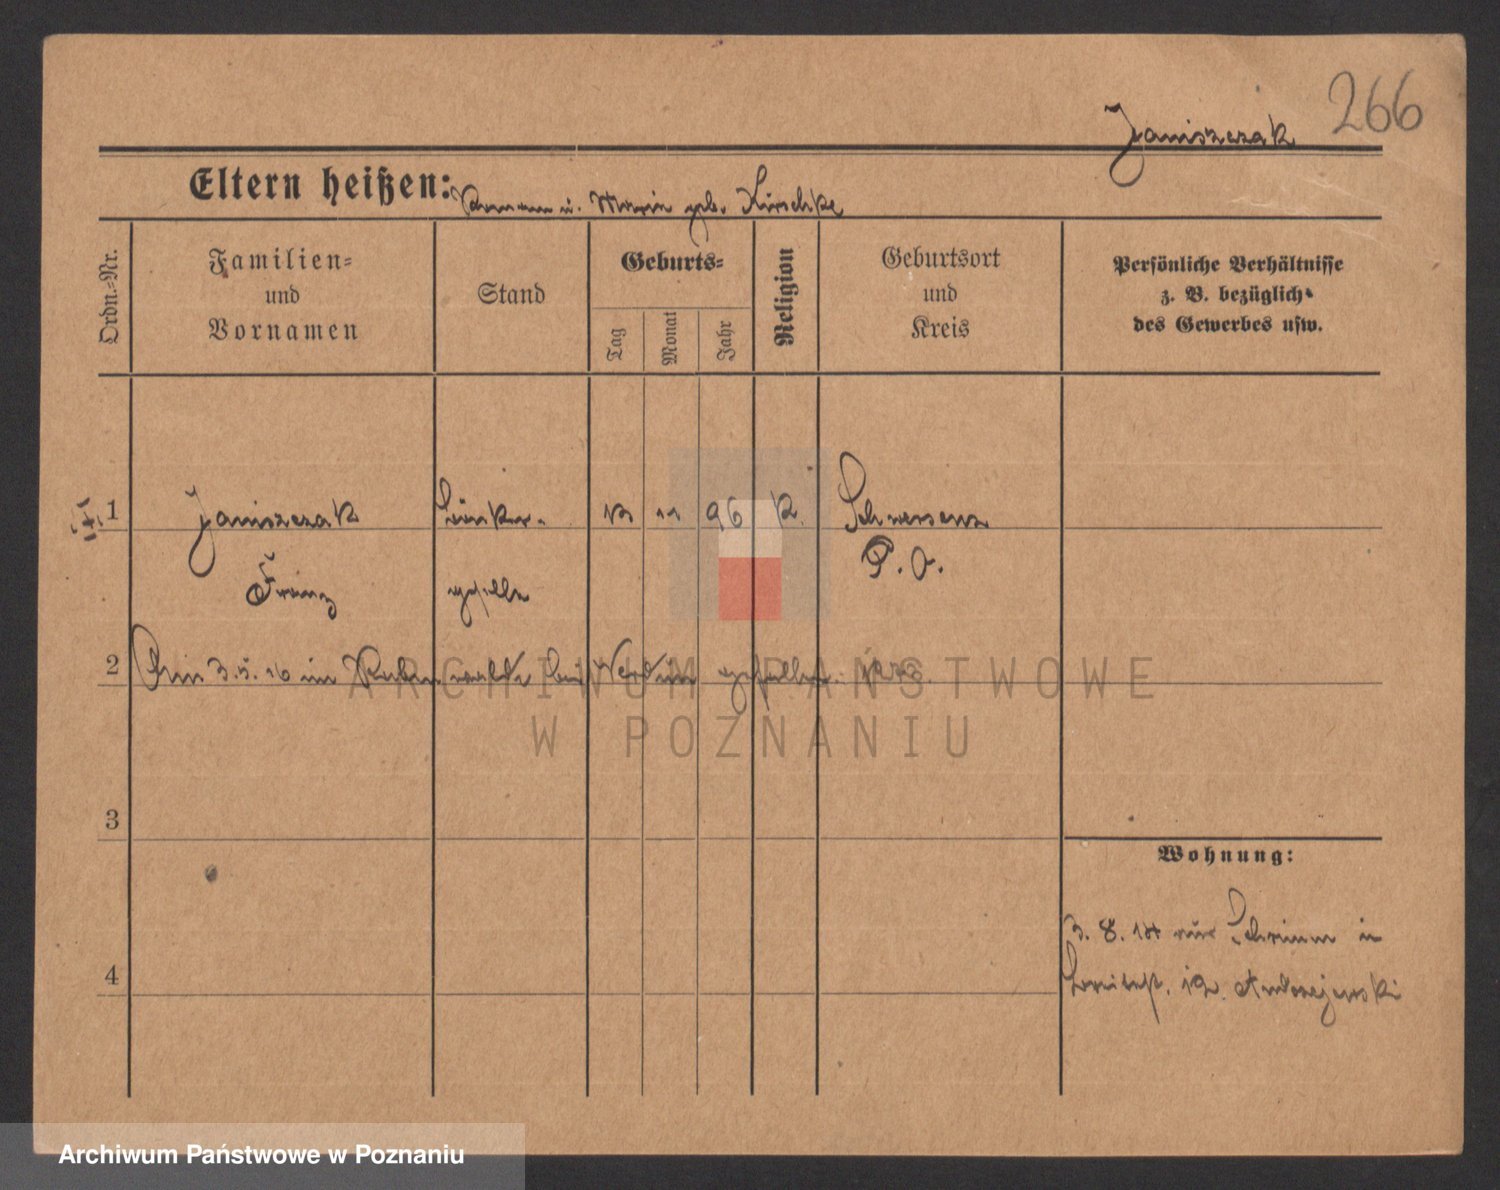 266
Janiszczak
Eltern heißen: u. Maria geb. Kirschke
Ordn.-Nr.
Familien-
und
Vornamen
Stand
Geburts-
Tag
Monat
Jahr
Religion
Geburtsort
und
Kreis
Persönliche Verhältnisse
z. B. bezüglich
des Gewerbes usw.
1 Janiszczak 11 96 K. Schwersenz
Franz gselle P. O.
2 Am 3.5.16 im walde bei gefallen.
3
4
Wohnung:
3. 8. 14 Schrimm in
Breitestr. 12. Andrzejewski
ARCHIWUM PAŃSTWOWE
W POZNANIU
Archiwum Państwowe w Poznaniu